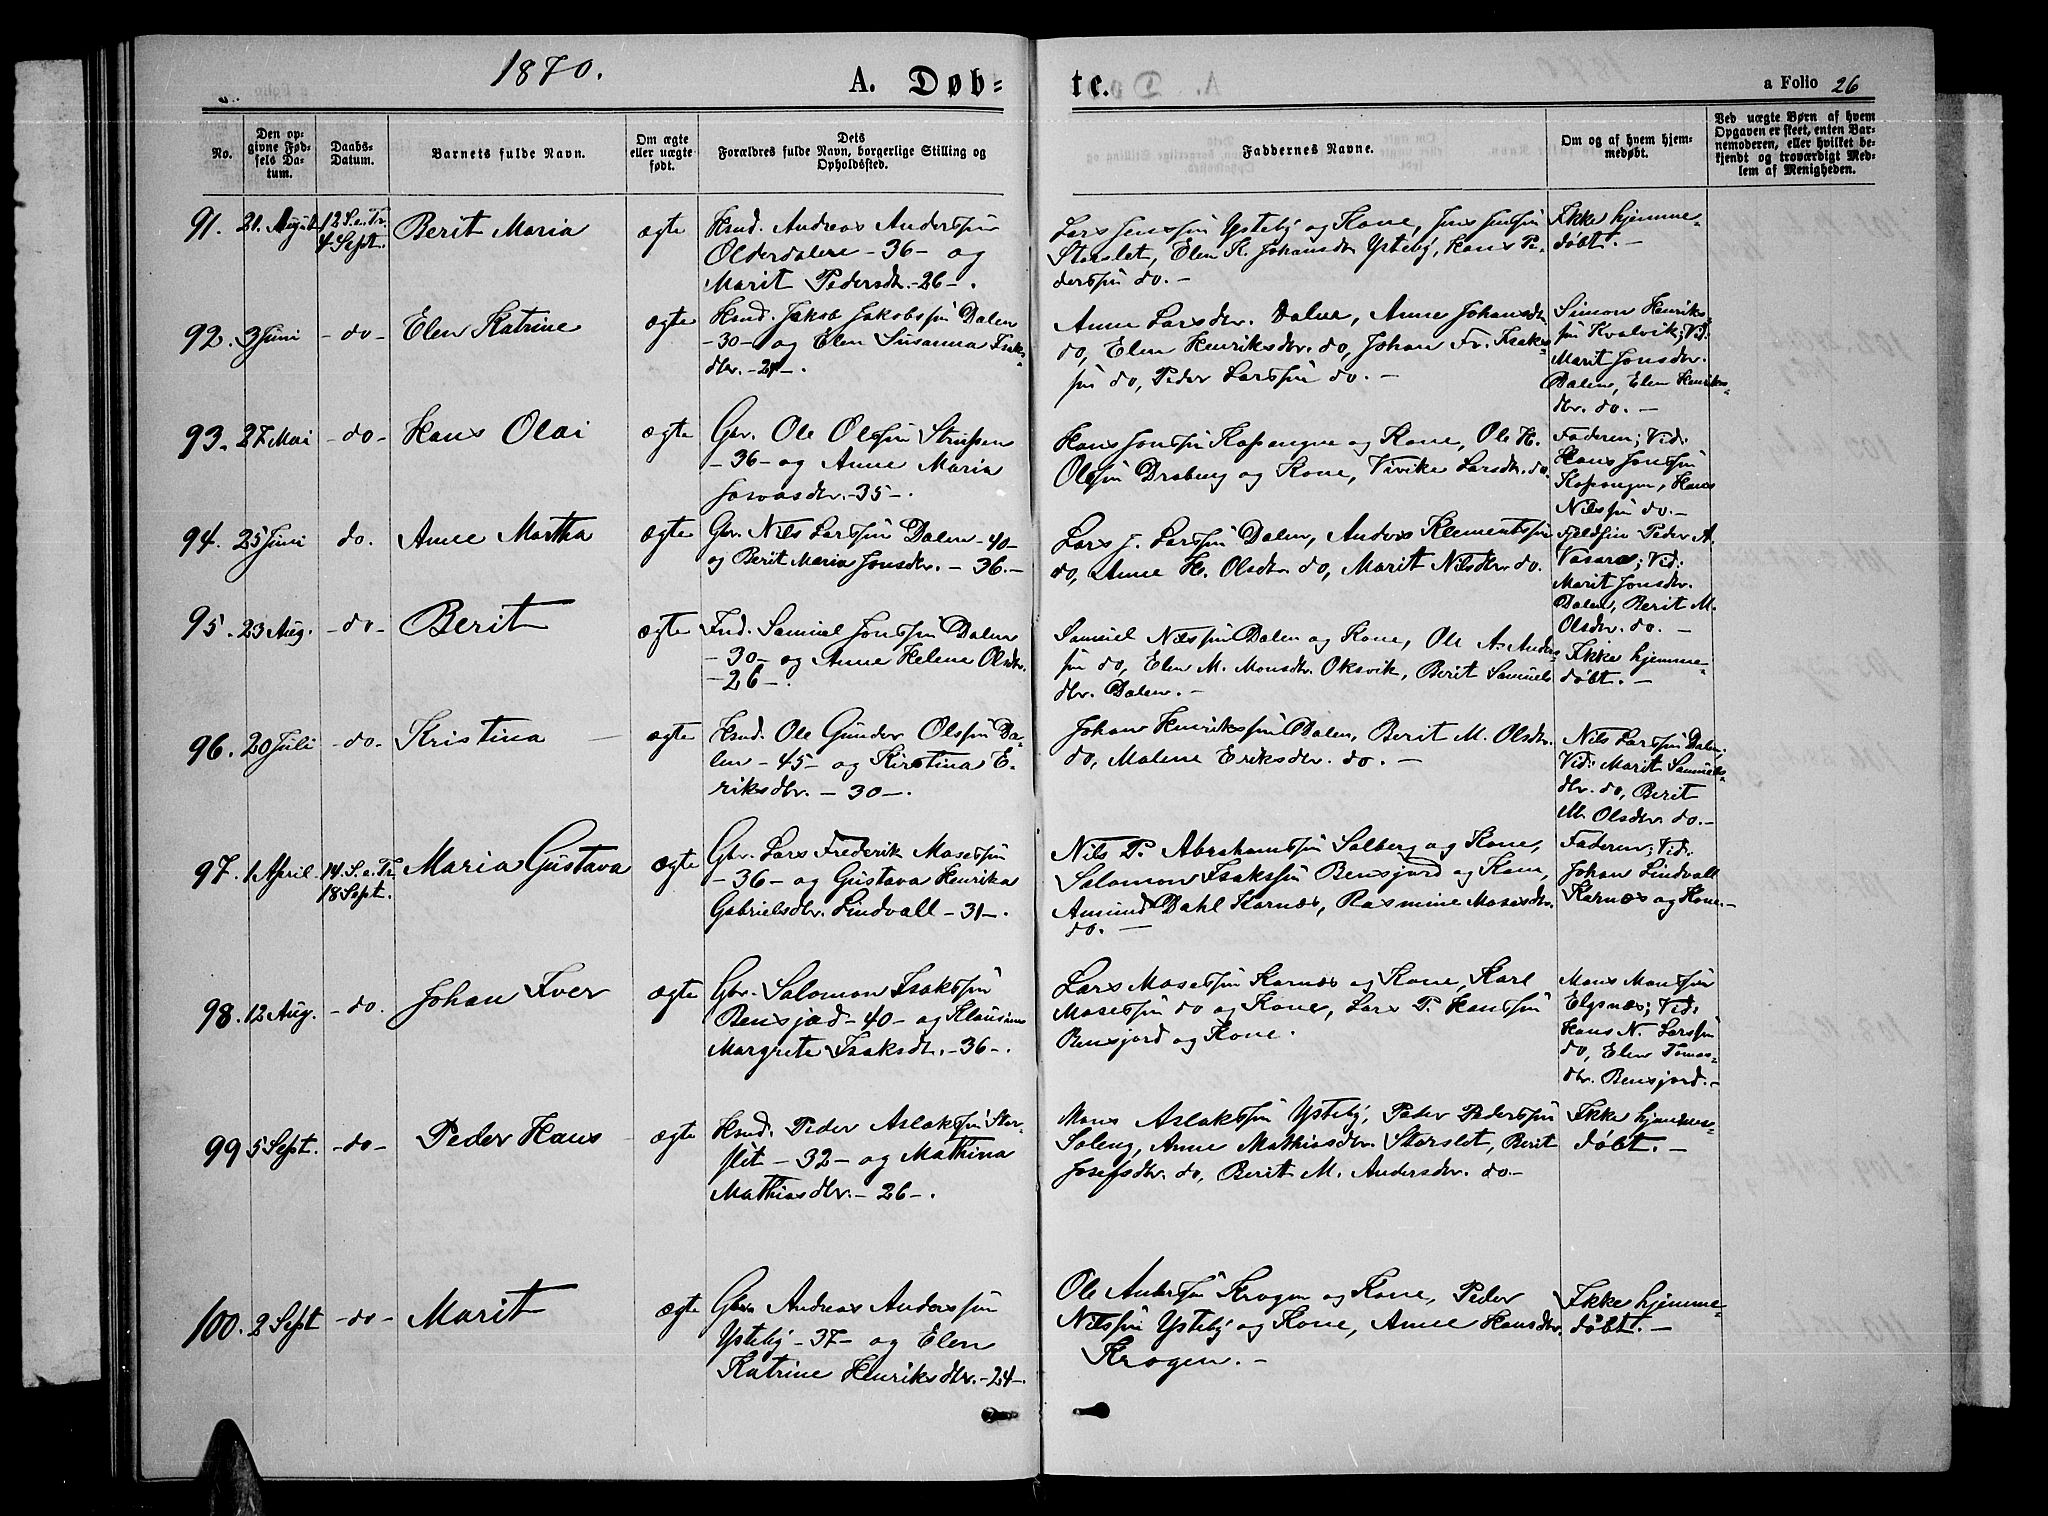 1870.
A. Døb=
te.
a Folio 26
No.
Den op=
givne Fød=
sels Da=
tum.
Daabs=
Datum.
Barnets fulde Navn.
Om ægte
eller uægte
født.
Dets
Forældres fulde Navn, borgerlige Stilling og
Opholdssted.
Faddernes Navne.
Om og af hvem hjem=
medøbt.
Ved uægte Børn af hvem
Opgaven er skeet, enten Bar=
nemoderen, eller hvilket be=
kjendt og troværdigt Med=
lem af Menigheden.
91. 21. August 12 S. e. Tr.
4 Sept.
Berit Maria
ægte
Hsnd. Andreas Anderssøn
Olderdalen - 36 - og
Marit Pedersdtr. - 26 -.
Lars Jenssøn Ysteby og Kone, Jens Jenssøn
Storslet, Elen K. Johansdtr Ysteby, Hans Pe-
derssøn do. -
Ikke hjemme-
døbt. -
92. 3 Juni - do - Elen Katrine
ægte
Hsnd. Jakob Jakobssøn Dalen
- 30 - og Elen Susanna Isaks-
dtr. - 21 -.
Anne Larsdtr. Dalen, Anne Johansdtr
do, Elen Henriksdtr. do, Johan Fr. Isaks-
søn do, Peder Larssøn do. -
Simon Henriks-
søn Kvalvik; Vid:
Marit Jonsdtr.
Dalen, Elen Henriks-
dtr. do. -
93. 27 Mai - do - Hans Olai
ægte
Gbr. Ole Olssøn Strupen
- 36 - og Anne Maria
- 35 -.
Hans Jonssøn Kopangen og Kone, Ole H.
Olssøn Draberg og Kone, Vivike Larsdtr. do.
Faderen; Vid:
Hans Jonssøn
Kopangen, Hans
Nilssøn do. -
94. 25 Juni do. Anne Martha
ægte
Gbr. Nils Larssøn Dalen - 40 -
og Berit Maria Jonsdtr. - 36. -
Lars J. Larssøn Dalen, Anders Klementssøn
do, Anne H. Olsdtr. do, Marit Nilsdtr. do.
Fjeldfin Peder A.
Vasara; Vid:
Marit Jonsdtr.
Dalen, Berit M.
Olsdtr. do. -
95. 23 Aug. - do - Berit
ægte
Ind. Samuel Jonssøn Dalen
- 30 - og Anne Helene Olsdtr.
- 26 -.
Samuel Nilssøn Dalen og Kone, Ole A. Anders-
søn do, Elen M. Monsdtr. Oksvik, Berit Samuels
dtr. Dalen. -
Ikke hjemme-
døbt. -
96. 20 Juli - do - Kristina
ægte
Hsnd. Ole Gunder Olssøn Da-
len - 45 - og Kirstina E-
riksdtr. - 30 -.
Johan Henrikssøn Dalen, Berit M. Olsdtr.
do, Malene Eriksdtr. do. -
Nils Larssøn Dalen;
Vid: Marit Samuels-
dtr. do, Berit
M. Olsdtr. do. -
97. 1 April. 14. S. e. Tr.
18 Sept.
Maria Gustava
ægte
Gbr. Lars Frederik Mosessøn
- 36 - og Gustava Henrika
Gabrielsdtr. Lindvall - 31 -.
Nils P. Abrahamssøn Solberg og Kone,
Salomon Isakssøn Bensjord og Kone,
Amund Dahl Karnæs, Rasmine Mosesdtr.
do. -
Faderen; Vid:
Johan Lindvall
Karnæs og Kone. -
98. 12 Aug. - do. Johan Iver
ægte
Gbr. Salomon Isakssøn
Bensjord - 40 - og Klausine
Margrete Isaksdtr. - 36 -.
Lars Mosessøn Karnæs og Kone, Karl
Mosessøn do og Kone, Lars P. Hanssøn
Bensjord og Kone.
Mons Monssøn
Elgsnæs; Vid:
Hans N. Larssøn
do, Elen Tomas-
dtr. Bensjord. -
99 5 Sept. - do - Peder Hans
ægte
Hsnd. Peder Aslakssøn Stor-
slet - 32 - og Mathina
Mathiasdtr. - 26 -.
Mons Aslakssøn Ysteby, Peder Pederssøn
Soleng, Anne Mathiasdtr. Storslet, Berit
Josefsdtr. do, Berit M. Andersdtr. do -
Ikke hjemme-
døbt. -
100. 2 Sept - do - Marit
ægte
Gbr. Andreas Anderssøn
Ysteby - 37 - og Elen
Katrine Henriksdtr. - 24 -.
Ole Anderssøn Krogen og Kone, Peder
Nilssøn Ysteby og Kone, Anne Hansdtr.
Krogen. -
Ikke hjemme-
døbt. -